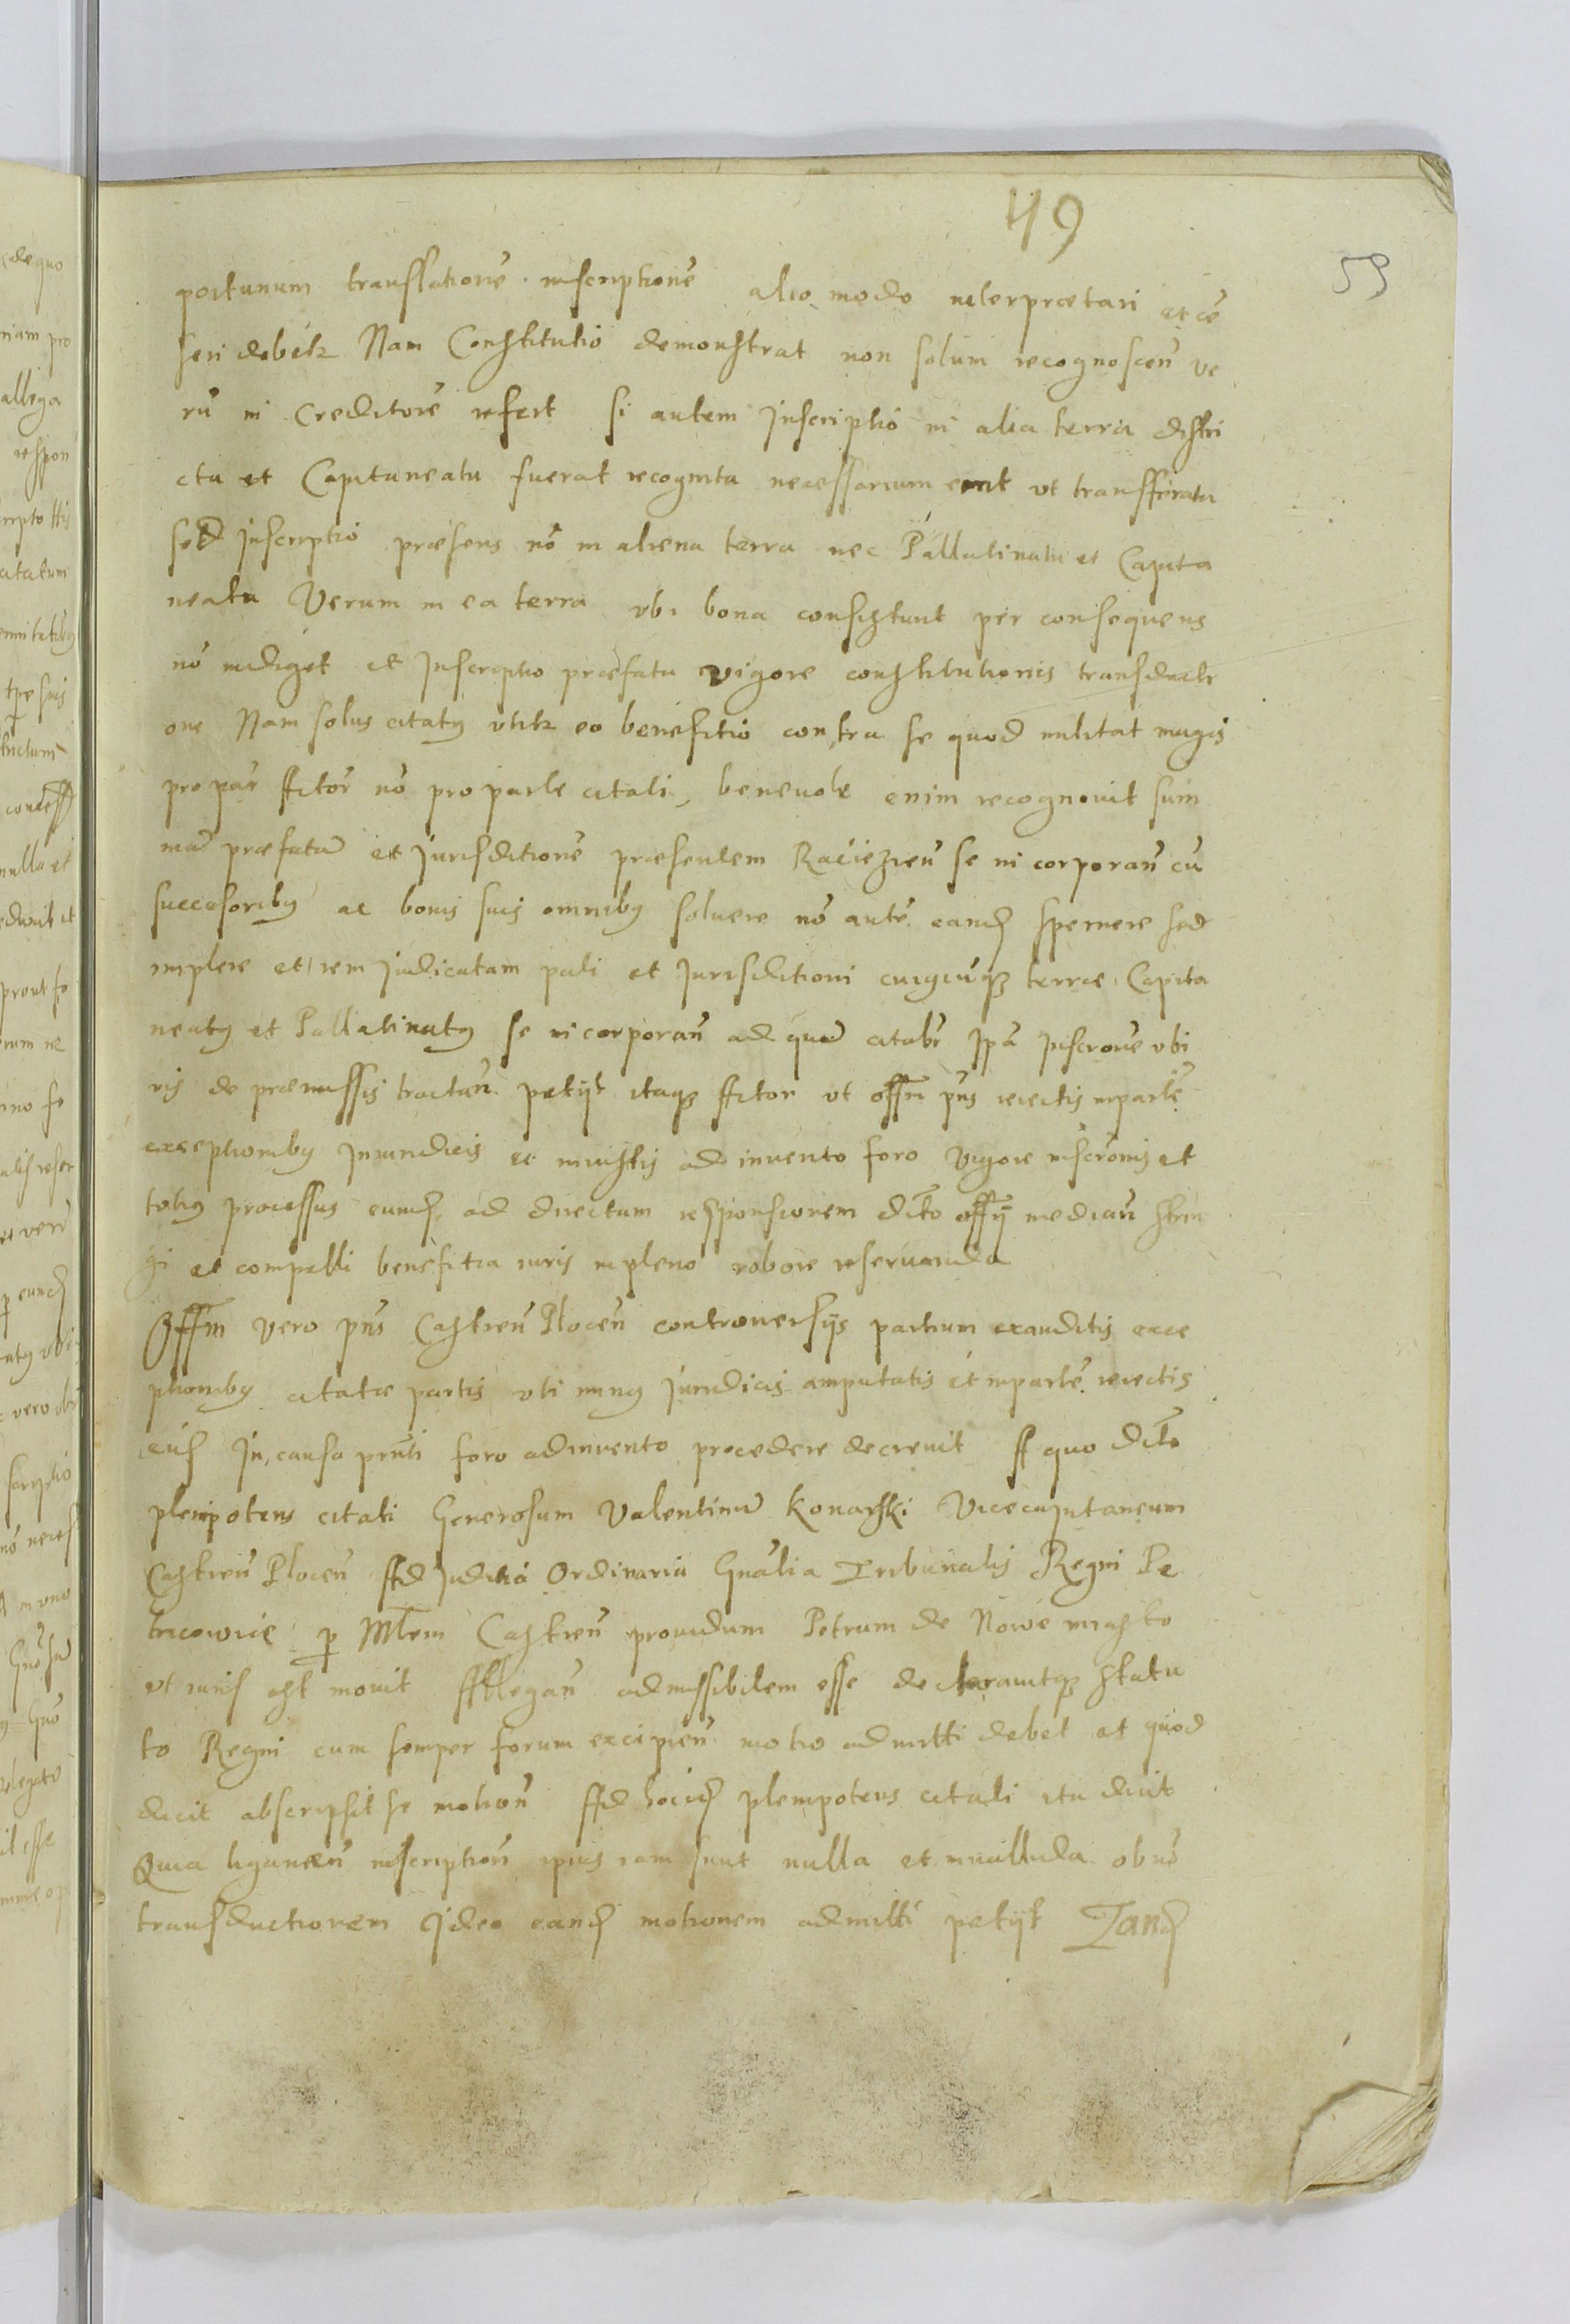 49
59
portunum translationē inscriptionē alio modo interpraetari et cē
seri debetz Nam Constitutio demonstrat non solum recognoscen̄ ve
rū in Creditorē refert si autem Inscriptio in alia terra distri
ctu et Capitaneatu fuerat recognita necessarium erit vt transferatu
sed Inscriptio praesens nō in aliena terra nec Pallatinatu et Capita
neatu Verum in ea terra vbi bona consistunt per consequens
nō indiget et Inscriptio praefata vigore constitutionis transducti
one Nam solus citatꝯ vtitz eo benefitio contra se quod militat magis
pro par̄ Actor̄ nō pro parte citati, beneuole enim recognouit sum
mā praefatā et Jurisditionē praesentem Raciezien̄ se in corporan̄ cū
successoribꝯ ac bonis suis omnibꝯ soluere nō autē eand spernere sed
implere et rem Judicatam pati et Jurisditioni cuiꝯcūqz terrae Capita
neatꝯ et Pallatinatꝯ se in corporan̄ ad quā citabr̄ Ipā Inscr̄one vbi
ris de praemissis tractan̄ petijt itaqz Actor vt offm̄ pn̄s reiectis in partē
exceptionibꝯ Injuridicis et iniustis ad invento foro vigore inscr̄onis et
totiꝯ processus eund ad directum responsionem dicto offij median̄ strin
gi et compelli benefitia iuris in pleno robore reseruanda
Offm̄ vero pn̄s Castren̄ Plocen̄ controuersijs partium exauditis exce
ptionibꝯ citatae partis vti minꝯ Juridicis amputatis et in partē reiectis
eūd In causa pn̄ti foro adinvento procedere decreuit A quo dicto
plenipotens citati Generosum Valentinū Konarski Vicecapitaneum
Castren̄ Plocen̄ Ad Juditia Ordinaria Gn̄alia Tribunalis Regni Pe
tricowie p Mlem Castren̄ prouidum Petrum de Nowe miasto
vt iuris est mouit Allegan̄ admissibilem esse declarauitqz statu
to Regni cum semper forum excipien̄ motio admitti debet et quod
dicit abscripsit se motion̄ Ad hocid plenipotens citati ita dicit
Quia ligamen̄ inscription̄ ipius iam sunt nulla et invallida ob nō
transductionem Ideo eand motionem admitti petijt Tand